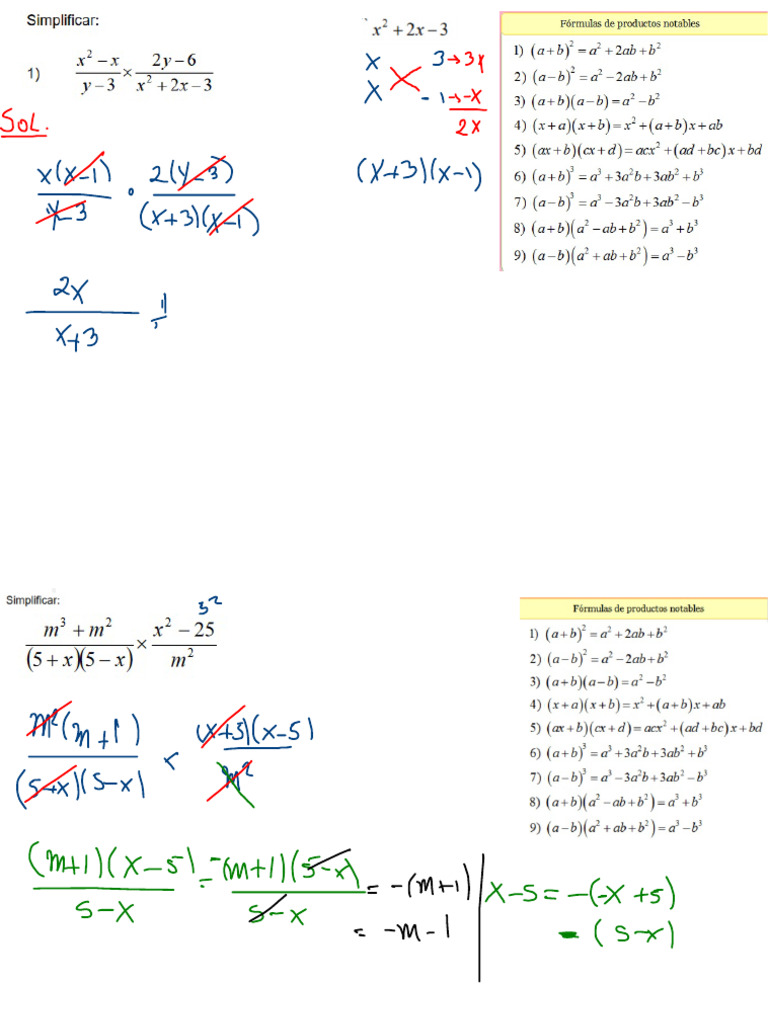 Simplificar:
1) \frac{x^2 - x}{y - 3} × \frac{2y - 6}{x^2 + 2x - 3}
SOL.
\frac{x(x-1)}{y-3} · \frac{2(y-3)}{(x+3)(x-1)}
\frac{2x}{x+3}
x² + 2x − 3
x 3 → 3x
x -1 → -x
2x
(x+3)(x-1)
Fórmulas de productos notables
1) (a+b)² = a² + 2ab + b²
2) (a−b)² = a² − 2ab + b²
3) (a+b)(a−b) = a² − b²
4) (x+a)(x+b) = x² + (a+b)x + ab
5) (ax+b)(cx+d) = acx² + (ad+bc)x + bd
6) (a+b)³ = a³ + 3a²b + 3ab² + b³
7) (a−b)³ = a³ − 3a²b + 3ab² − b³
8) (a+b)(a² − ab + b²) = a³ + b³
9) (a−b)(a² + ab + b²) = a³ − b³
Simplificar:
5²
\frac{m³ + m²}{(5+x)(5−x)} × \frac{x² − 25}{m²}
\frac{m²(m+1)}{(5+x)(5-x)} × \frac{(x+5)(x-5)}{m²}
\frac{(m+1)(x-5)}{5-x} = \frac{-(m+1)(5-x)}{5-x} = -(m+1)
= -m-1
x-5 = -(-x+5)
= (5-x)
Fórmulas de productos notables
1) (a+b)² = a² + 2ab + b²
2) (a−b)² = a² − 2ab + b²
3) (a+b)(a−b) = a² − b²
4) (x+a)(x+b) = x² + (a+b)x + ab
5) (ax+b)(cx+d) = acx² + (ad+bc)x + bd
6) (a+b)³ = a³ + 3a²b + 3ab² + b³
7) (a−b)³ = a³ − 3a²b + 3ab² − b³
8) (a+b)(a² − ab + b²) = a³ + b³
9) (a−b)(a² + ab + b²) = a³ − b³